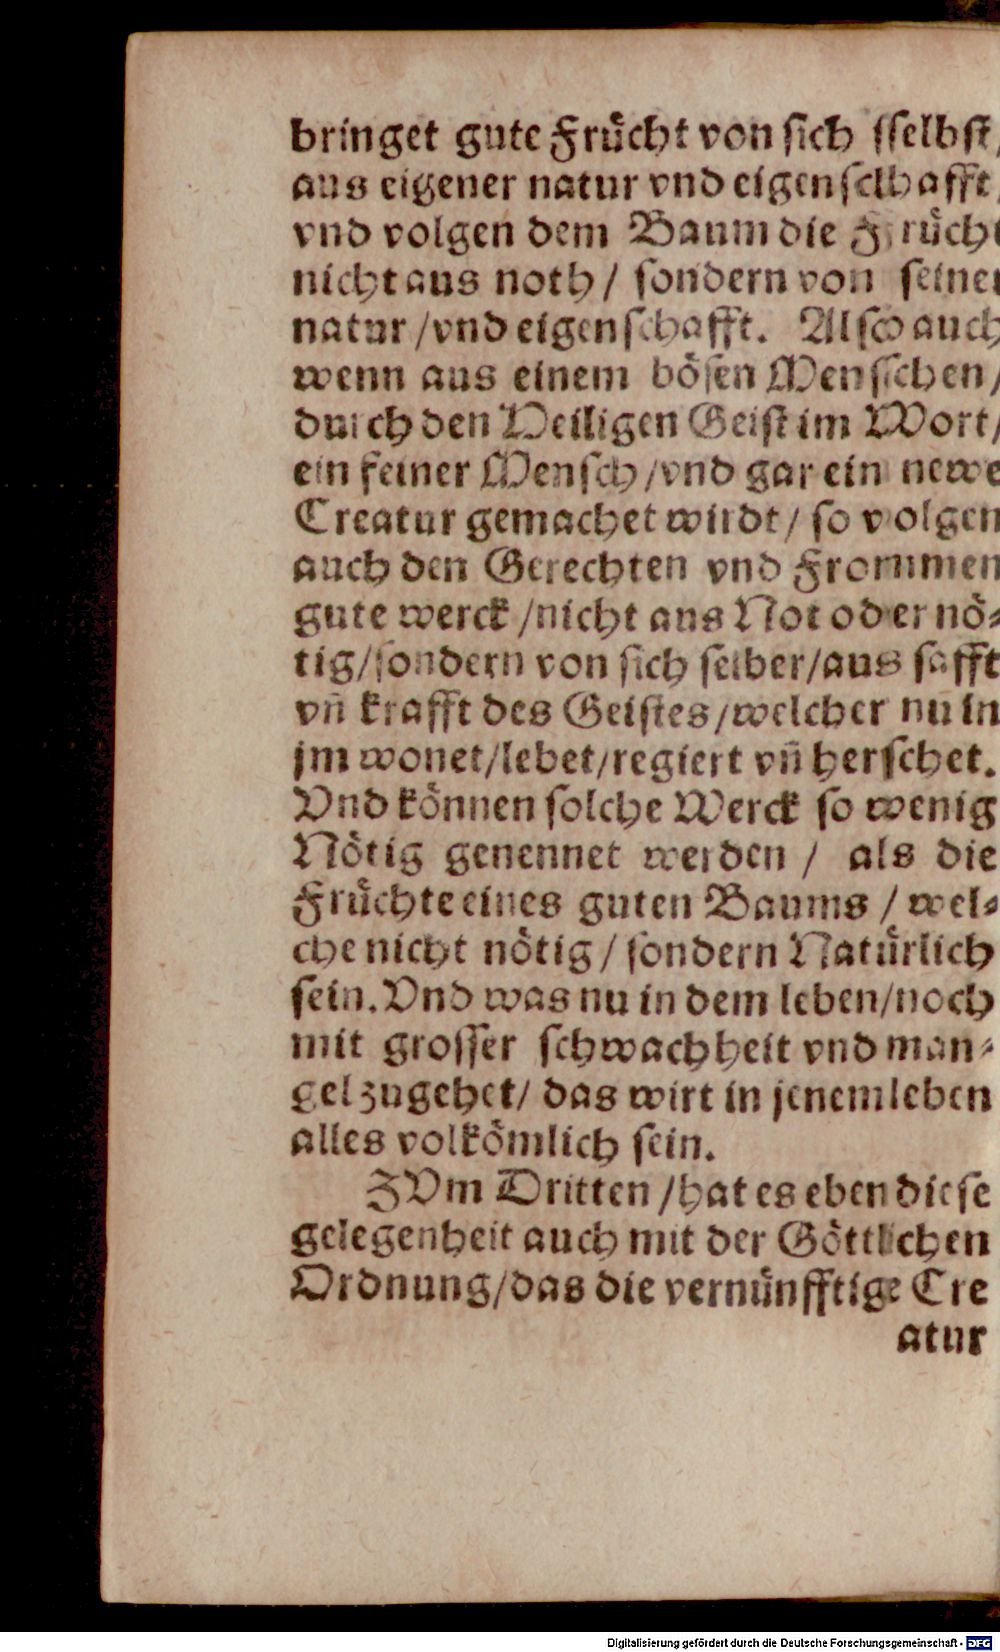 bringet gute Frücht von sich sselbst/
aus eigener natur vnd eigenschafft
vnd volgen dem Baum die Frücht
nicht aus noth / sondern von seiner
natur /vnd eigenschafft. Also auch
wenn aus einem bösen Mensschen/
durch den Heiligen Geist im Wort/
ein feiner Mensch /vnd gar ein newe
Creatur gemachet wirdt / so volgen
auch den Gerechten vnd Frommen
gute werck /nicht aus Not oder nö⸗
tig/sondern von sich selber/aus safft
vn̄ krafft des Geistes/welcher nu in
jm wonet/lebet/regiert vn̄ herschet.
Vnd können solche Werck so wenig
Nötig genennet werden / als die
Früchte eines guten Baums / wel⸗
che nicht nötig / sondern Natürlich
sein. Vnd was nu in dem leben/noch
mit grosser schwachheit vnd man⸗
gel zugehet/ das wirt in jenem leben
alles volkömlich sein.
ZVm Dritten /hat es eben diese
gelegenheit auch mit der Göttlichen
Ordnung/das die vernünfftige Cre
atur
Digitalisierung gefördert durch die Deutsche Forschungsgemeinschaft - DFG